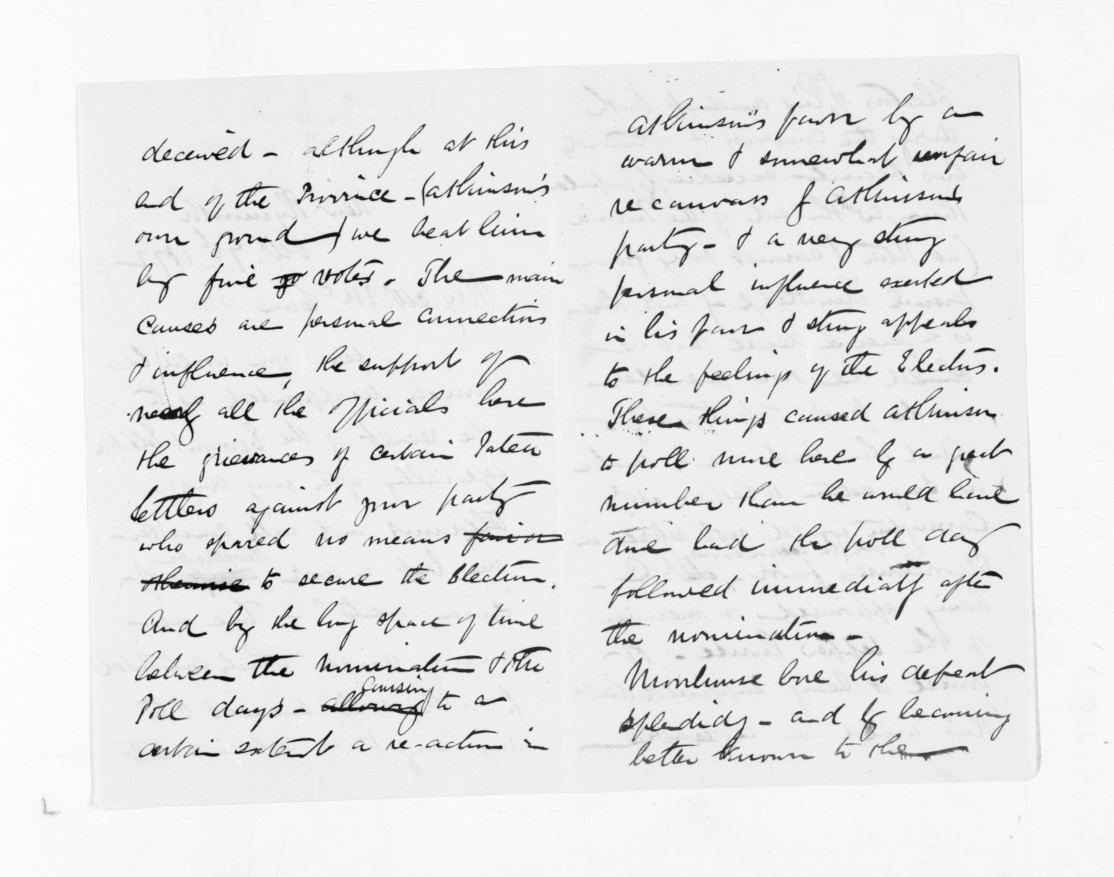 deceived - although at this
end of the Province - (Atkinson's
own ground) we beat him
by five votes. The main
causes are personal connections
& influence, the support of
nearly all the Officials here
the grievances of certain Patea
Settlers against your party
who spared no means fair or
otherwise to secure the Election.
And by the long space of time
between the nomination & the
Poll days - allowing causing to a
certain extent a re-action in
Atkinson's favor by a
warm & somewhat unfair
re canvass of Atkinson's
party - & a very strong
personal influence exerted
in his favor & strong appeals
to the feelings of the Electors.
These things caused Atkinson
to poll more here by a great
number than he would have
done had the poll day
followed immediately after
the nomination -
Moorhouse bore his defeat
splendidly - and by becoming
better known to the